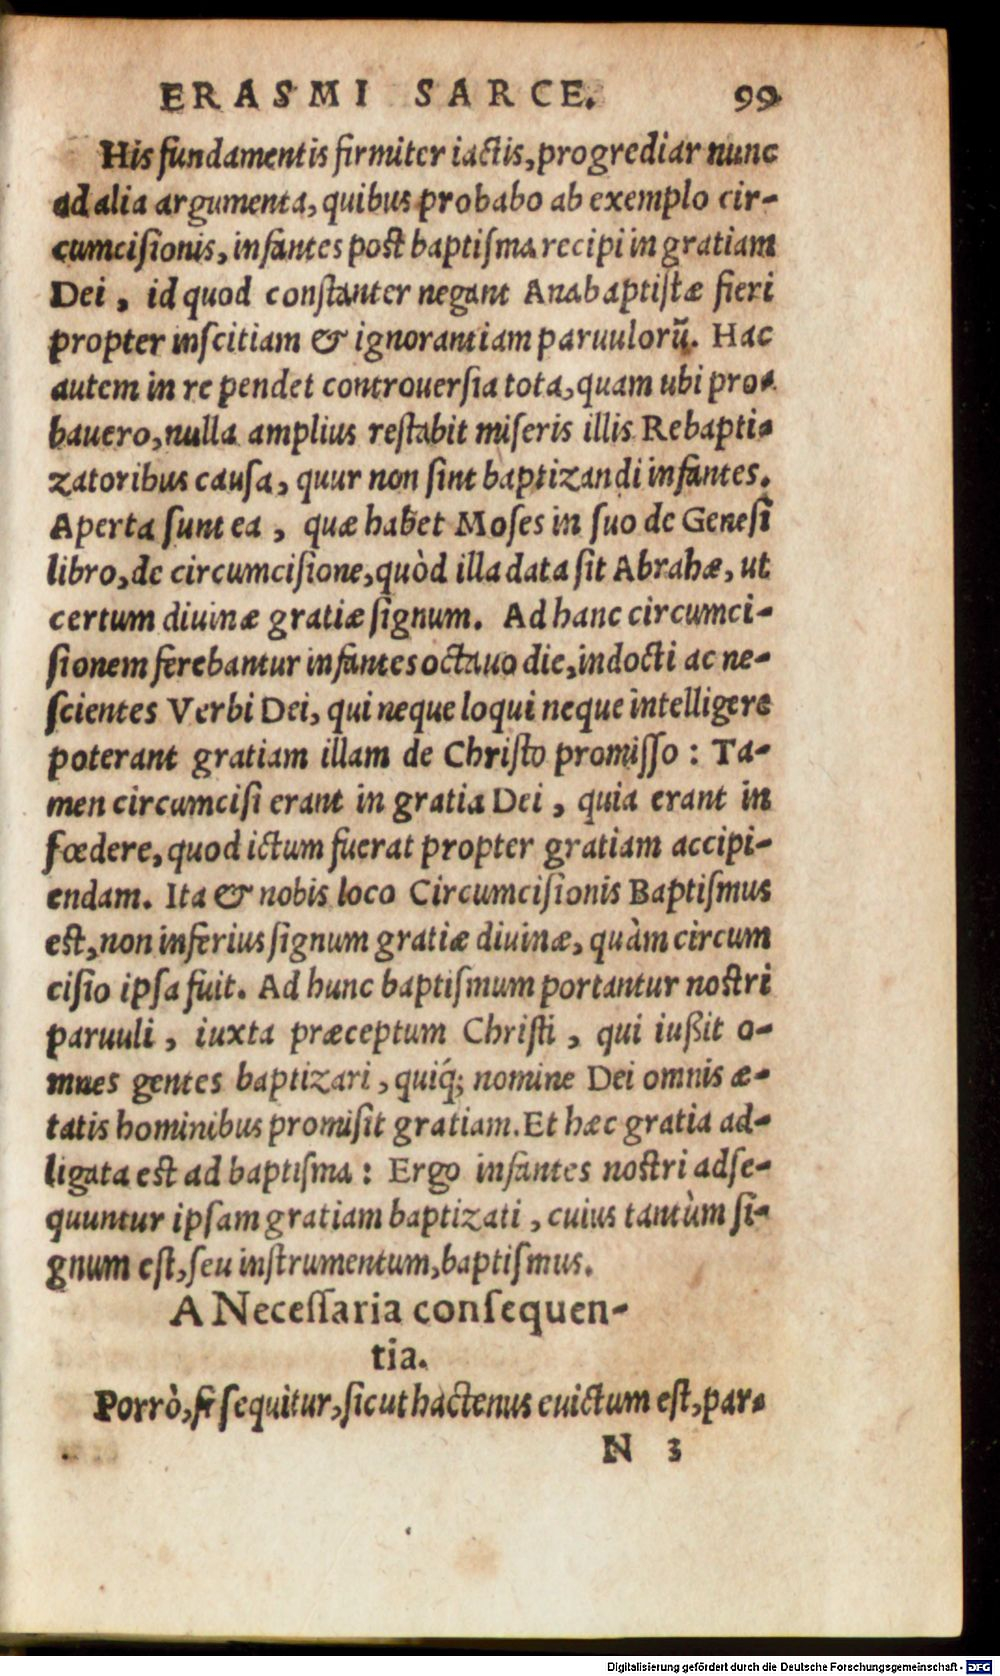 ERASMI SARCE. 99
His fundamentis firmiter iactis, progrediar nunc
ad alia argumenta, quibus probabo ab exemplo cir-
cumcisionis, infantes post baptisma recipi in gratiam
Dei, id quod constanter negant Anabaptistæ fieri
propter inscitiam & ignorantiam paruulorū. Hac
autem in re pendet controuersia tota, quam ubi pro-
bauero, nulla amplius restabit miseris illis Rebapti-
zatoribus causa, quur non sint baptizandi infantes.
Aperta sunt ea, quæ habet Moses in suo de Genesi
libro, de circumcisione, quòd illa data sit Abrahæ, ut
certum diuinæ gratiæ signum. Ad hanc circumci-
sionem ferebantur infantes octauo die, indocti ac ne-
scientes Verbi Dei, qui neque loqui neque intelligere
poterant gratiam illam de Christo promisso: Ta-
men circumcisi erant in gratia Dei, quia erant in
fœdere, quod ictum fuerat propter gratiam accipi-
endam. Ita & nobis loco Circumcisionis Baptismus
est, non inferius signum gratiæ diuinæ, quàm circum
cisio ipsa fuit. Ad hunc baptismum portantur nostri
paruuli, iuxta præceptum Christi, qui iußit o-
mnes gentes baptizari, quiq́; nomine Dei omnis æ-
tatis hominibus promisit gratiam. Et hæc gratia ad-
ligata est ad baptisma: Ergo infantes nostri adse-
quuntur ipsam gratiam baptizati, cuius tantùm si-
gnum est, seu instrumentum, baptismus.
A Necessaria consequen-
tia.
Porrò, si sequitur, sicut hactenus euictum est, par-
N 3
Digitalisierung gefördert durch die Deutsche Forschungsgemeinschaft - DFG